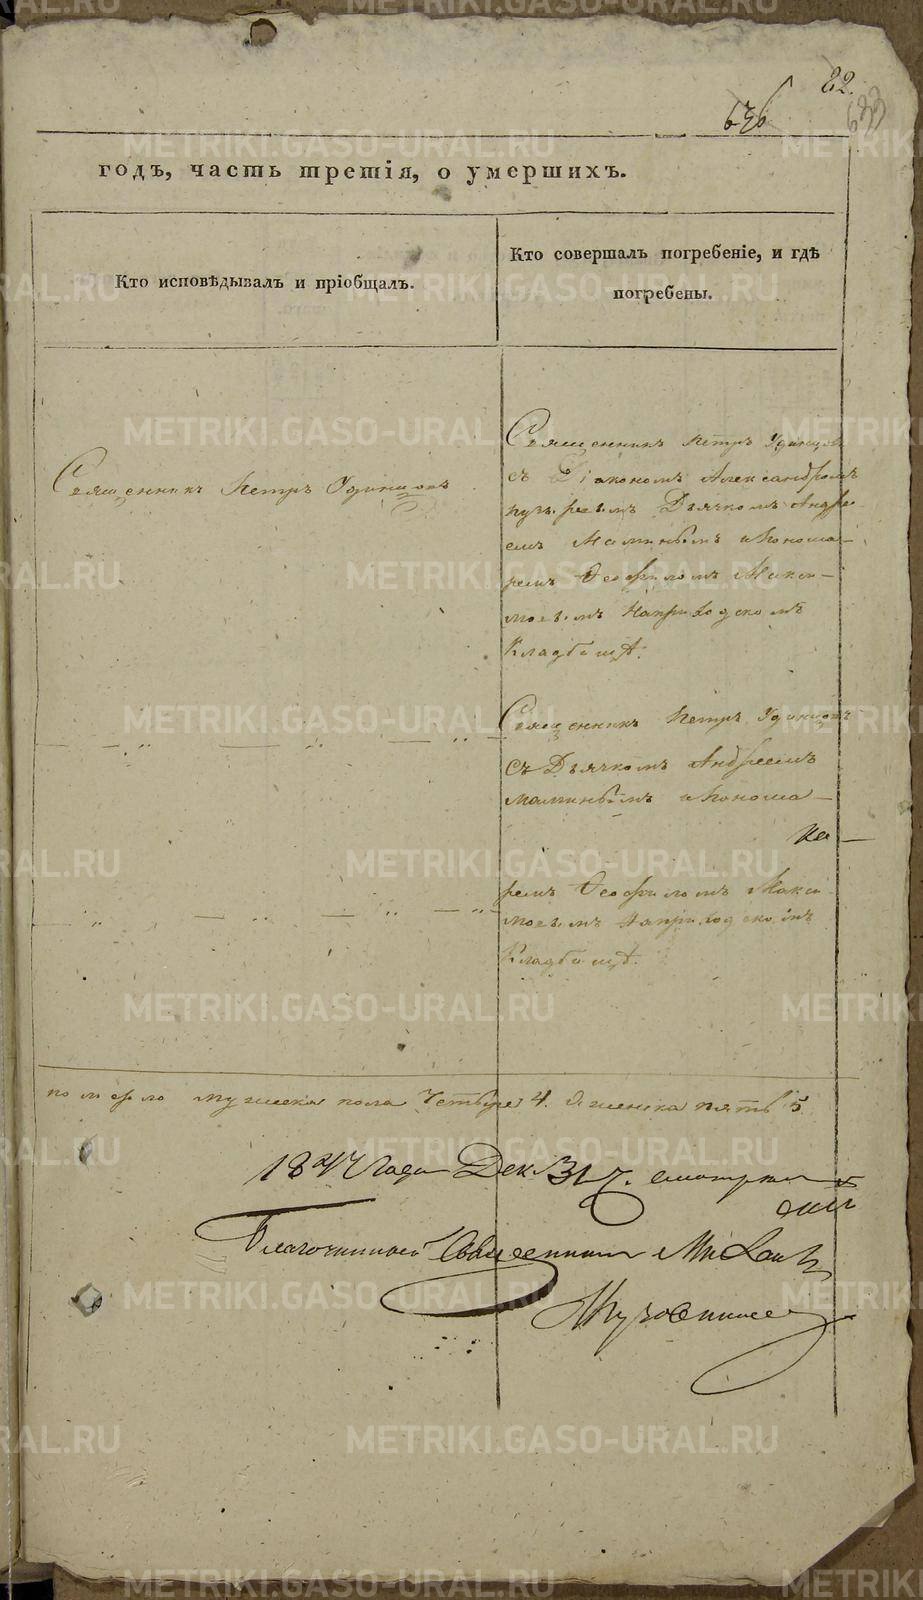 22.
636
633
годъ, часть третія, о умершихъ.
Кто исповѣдывалъ и пріобщалъ.
Кто совершалъ погребеніе, и гдѣ
погребены.
Священникъ Петръ Удинцовъ
Священникъ Петръ Удинцовъ
съ Діакономъ Александромъ
Дьячкомъ Андре
емъ Малинымъ и Понома-
ремъ Ѳеофиломъ Макси-
мовымъ на приходскомъ
Кладбищѣ.
Священникъ Петръ Удинцовъ
съ Дьячкомъ Андреемъ
Малинымъ и Понома-
ремъ Ѳеофиломъ Макси
мовымъ на приходскомъ
Кладбищѣ.
мужеска пола Четыре 4. Женска пять 5
1847 года Дек. 31 ч. смотрел
Благочинный Священник Михаил
METRIKI.GASO-URAL.RU